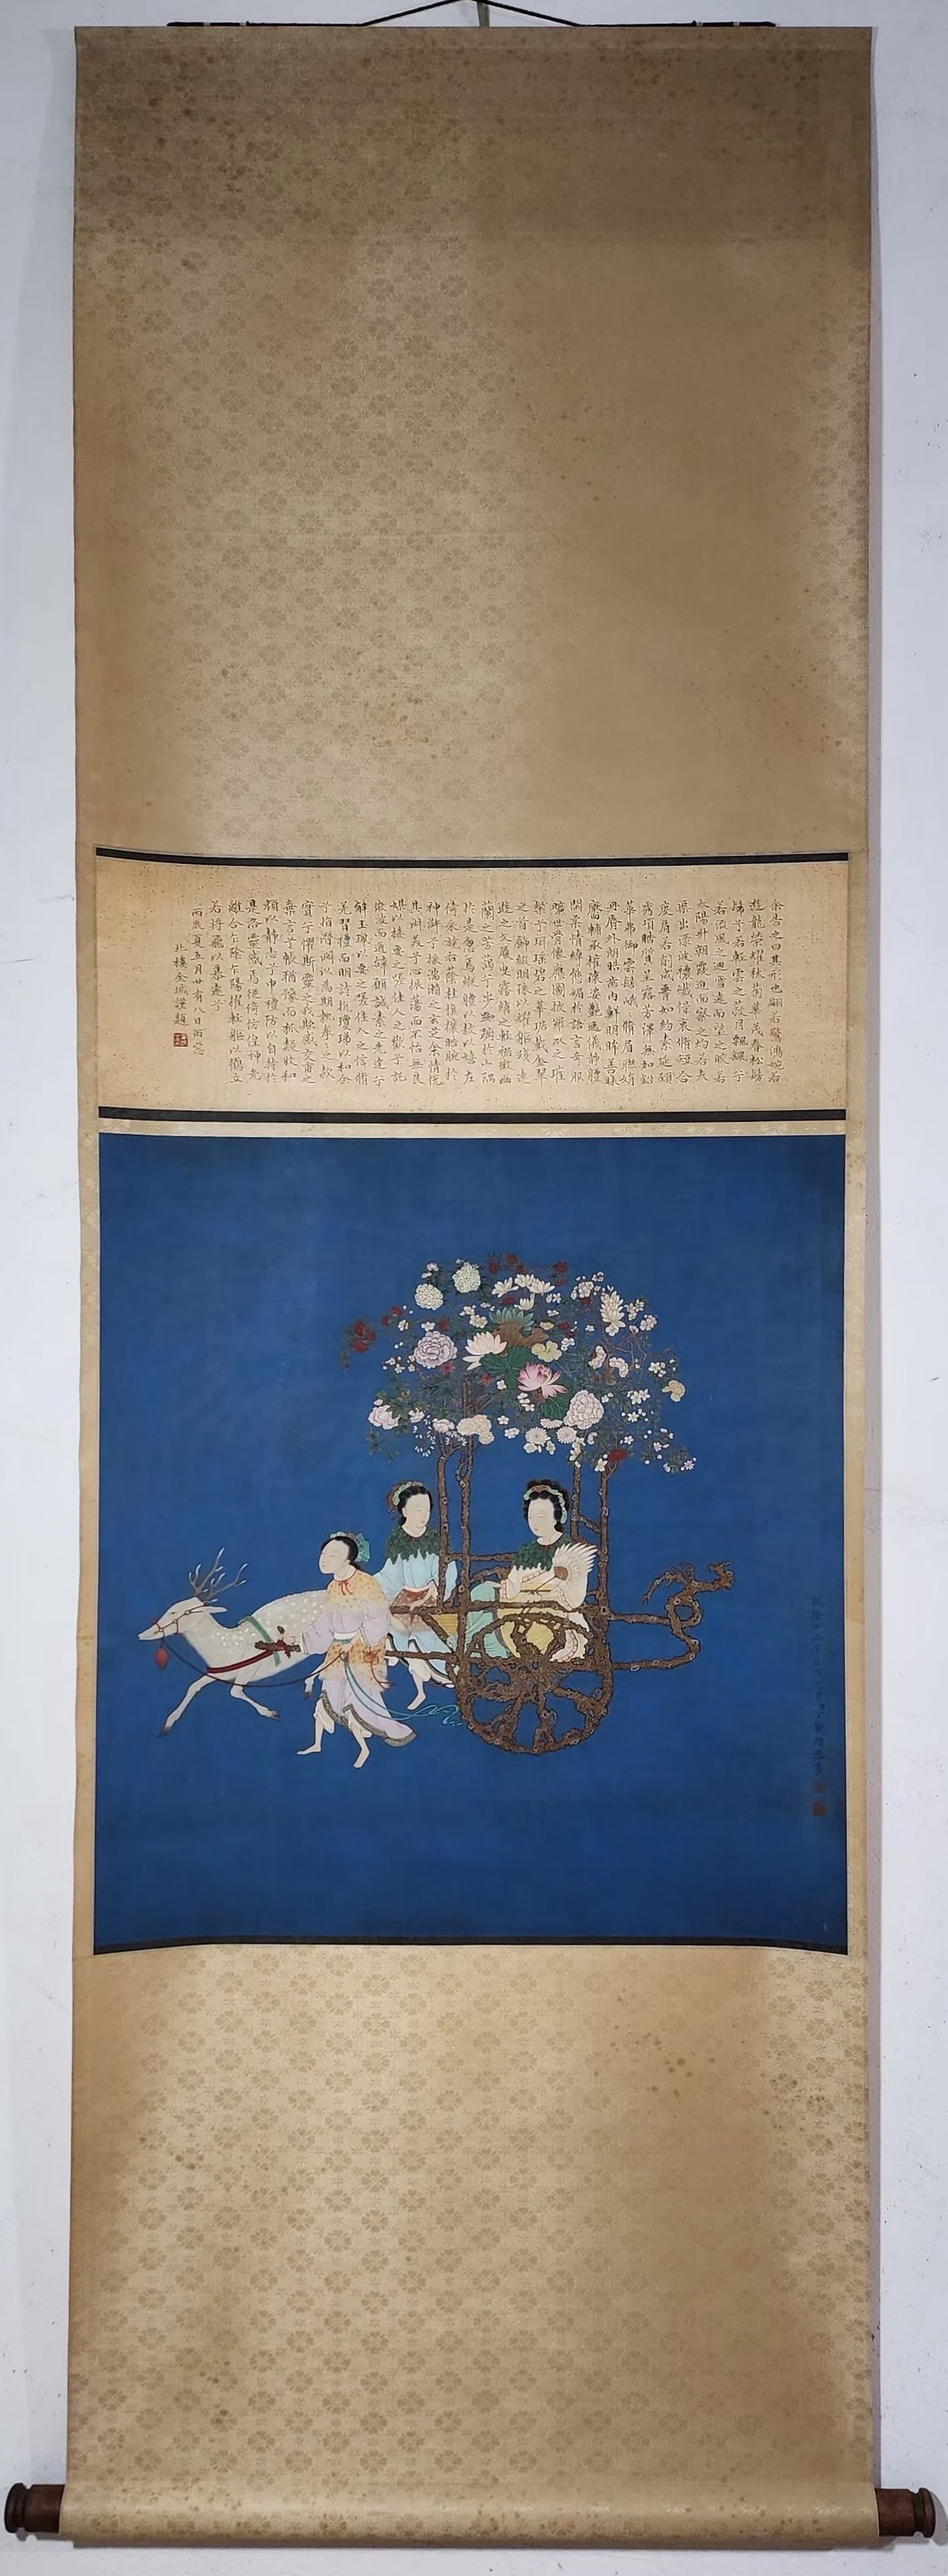 余告之曰其形也翩若驚鴻婉若
遊龍榮耀秋菊華茂春松髣
髴兮若輕雲之蔽月飄颻兮
若流風之迴雪遠而望之皎若
太陽升朝霞迫而察之灼若夫
渠出淥波穠纖得衷脩短合
度肩若削成腰如約素延頸
秀項皓質呈露芳澤無加鉛
華弗御雲髻峨峨脩眉聯娟
丹脣外朗皓齒內鮮明眸善睞
靨輔承權瓌姿艷逸儀靜體
閑柔情綽態媚於語言奇服
曠世骨像應圖披羅衣之璀
粲兮珥瑤碧之華琚戴金翠
之首飾綴明珠以耀軀踐遠
遊之文履曳霧綃之輕裾微幽
蘭之芳藹兮步踟躕於山隅
於是忽焉縱體以敖以嬉左
倚采旄右蔭桂旗攘皓腕於
神滸兮採湍瀨之玄芝余情悅
其淑美兮心振蕩而不怡無良
媒以接要之嗟佳人之歡兮託
微波而通辭願誠素之先達兮
解玉珮以要之嗟佳人之信脩
羌習禮而明詩抗瓊珶以和余
兮指潛淵以為期執拳拳之款
實兮懼斯靈之我欺感交甫之
棄言兮悵猶豫而狐疑收和
顏以靜志兮申禮防以自持於
是洛靈感焉徙倚彷徨神光
離合乍陰乍陽擢輕軀以鶴立
若將飛以慕遠兮
丙辰夏五月廿有八日雨窗
北樓金城謹題
乾隆十二年